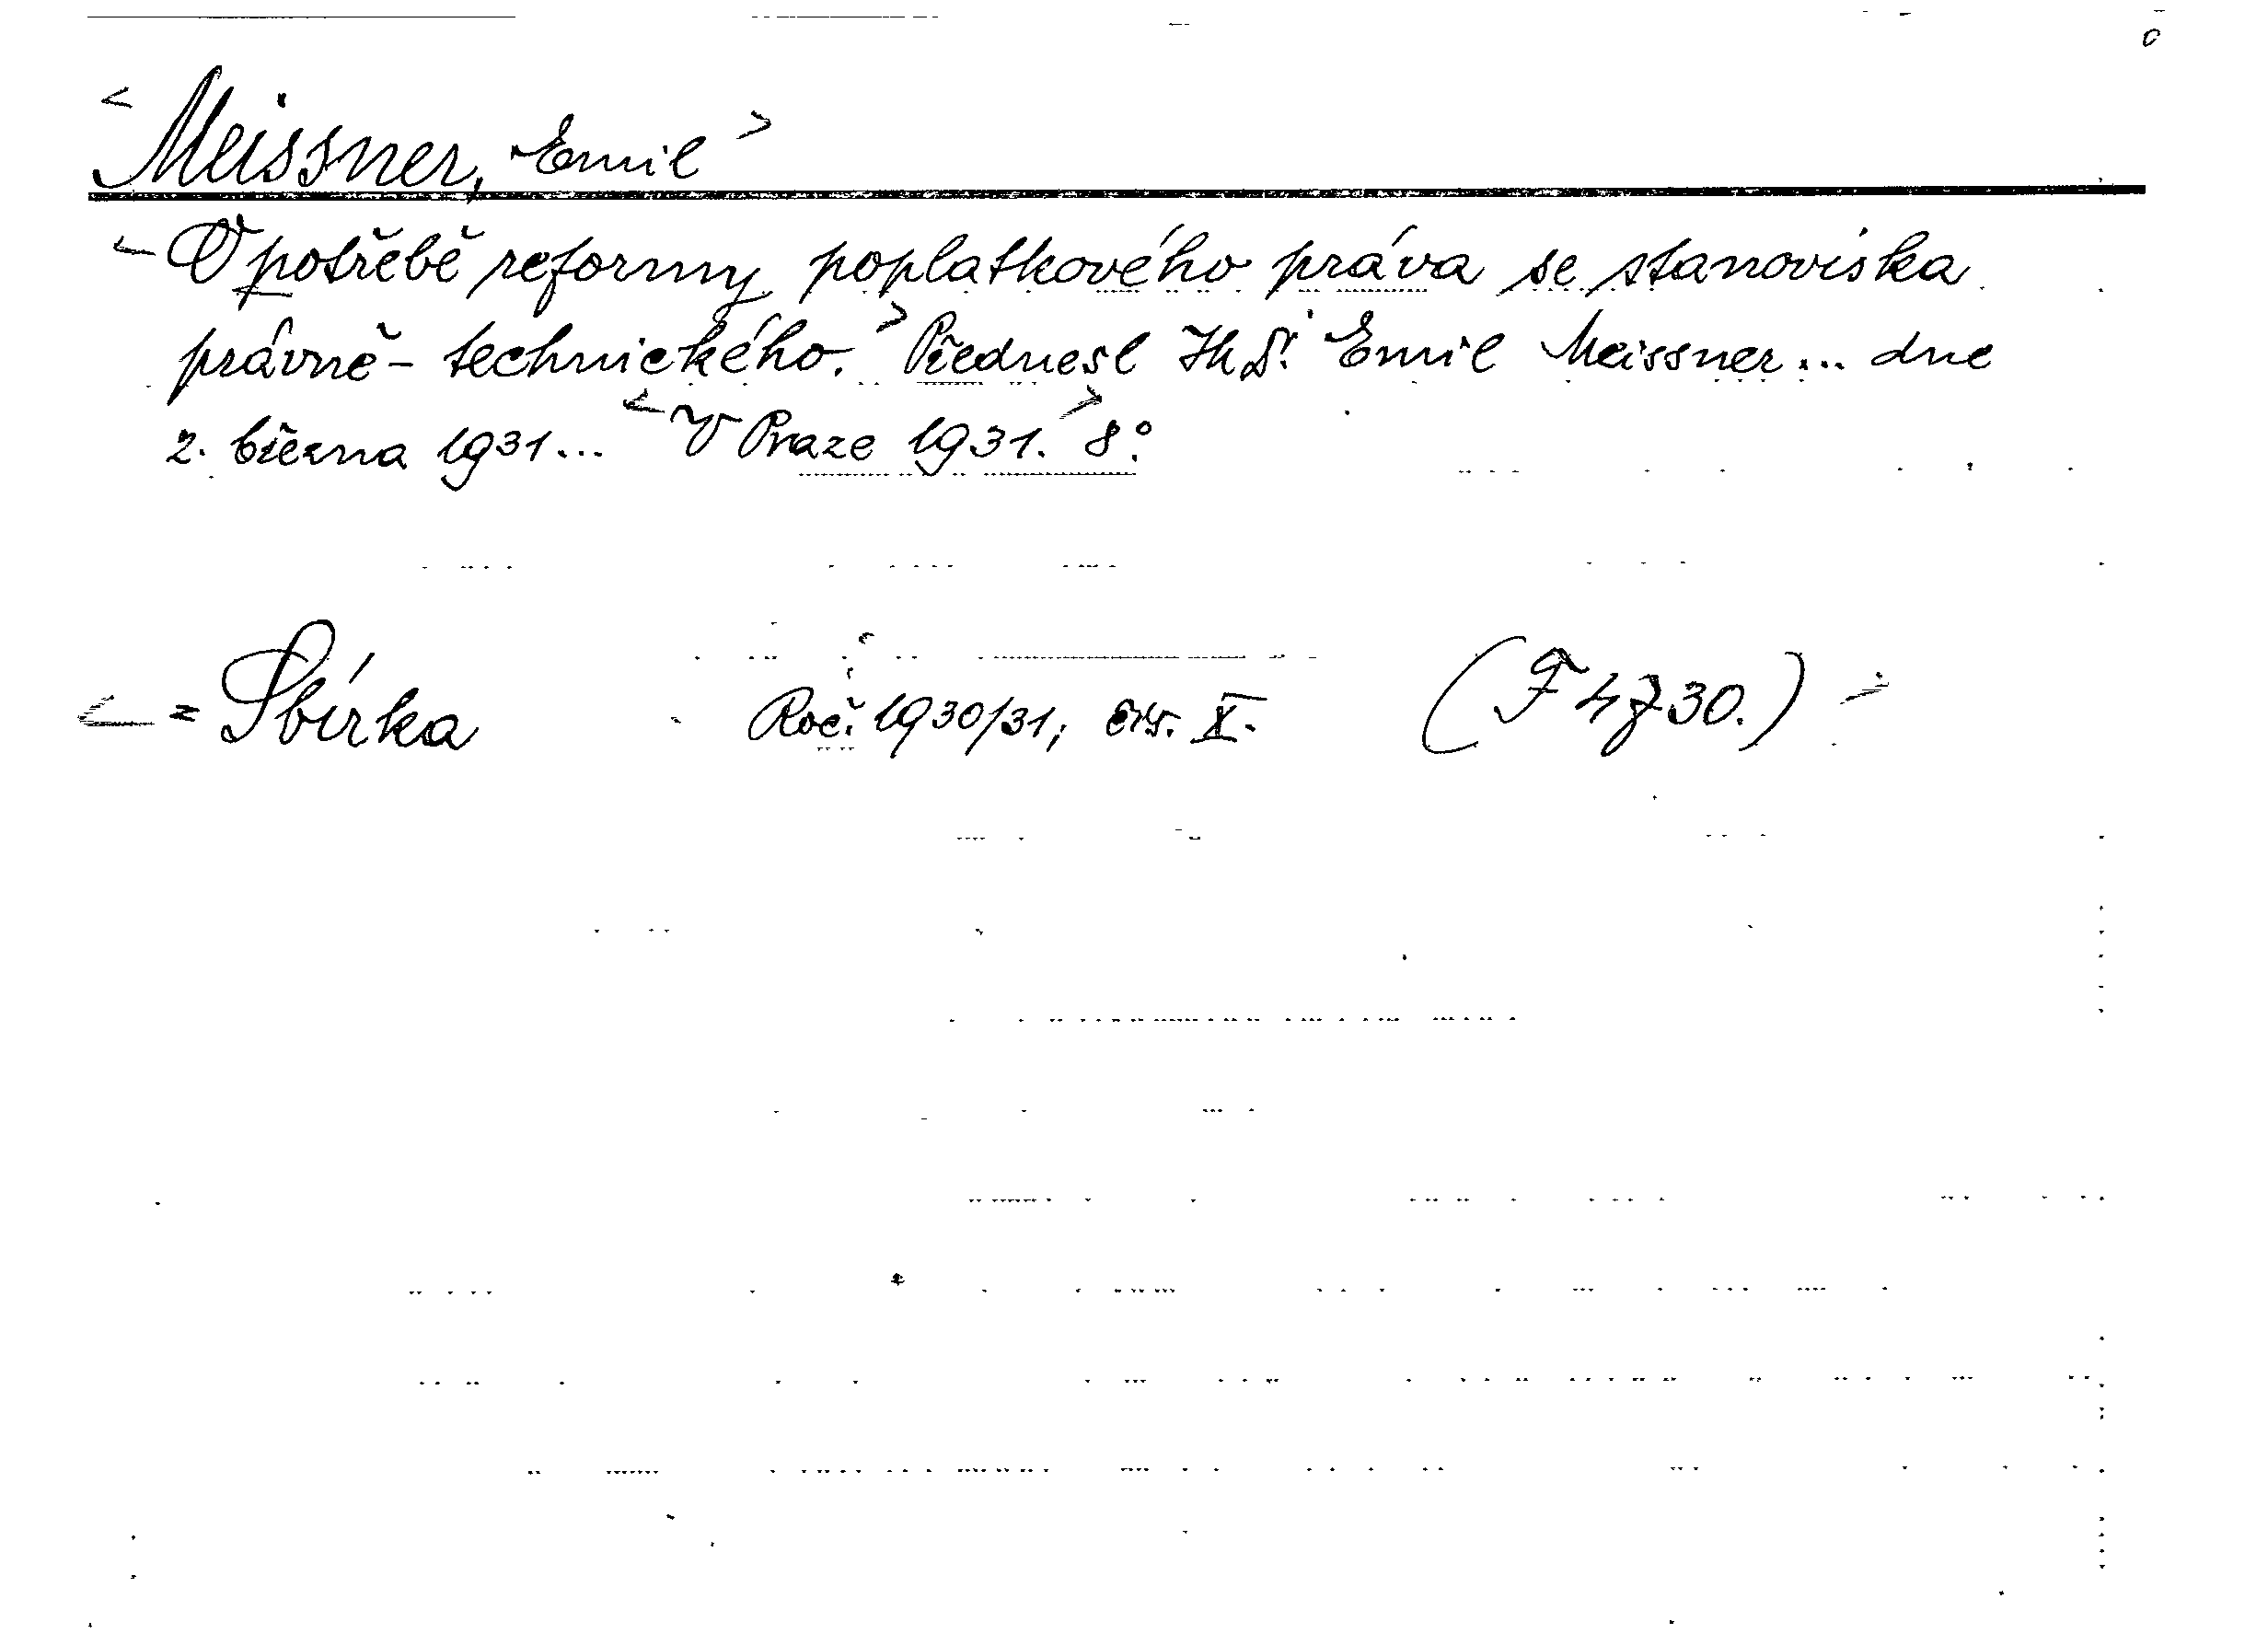 <Meissner, Emil>
<O potřebě reformy poplatkového práva se stanoviska
právně-technického.> Přednesl JUDr. Emil Meissner... dne
2. března 1931... <V Praze 1931.> 8°.
<= Sbírka Roč. 1930/31, čís. X. (F 4730.)>